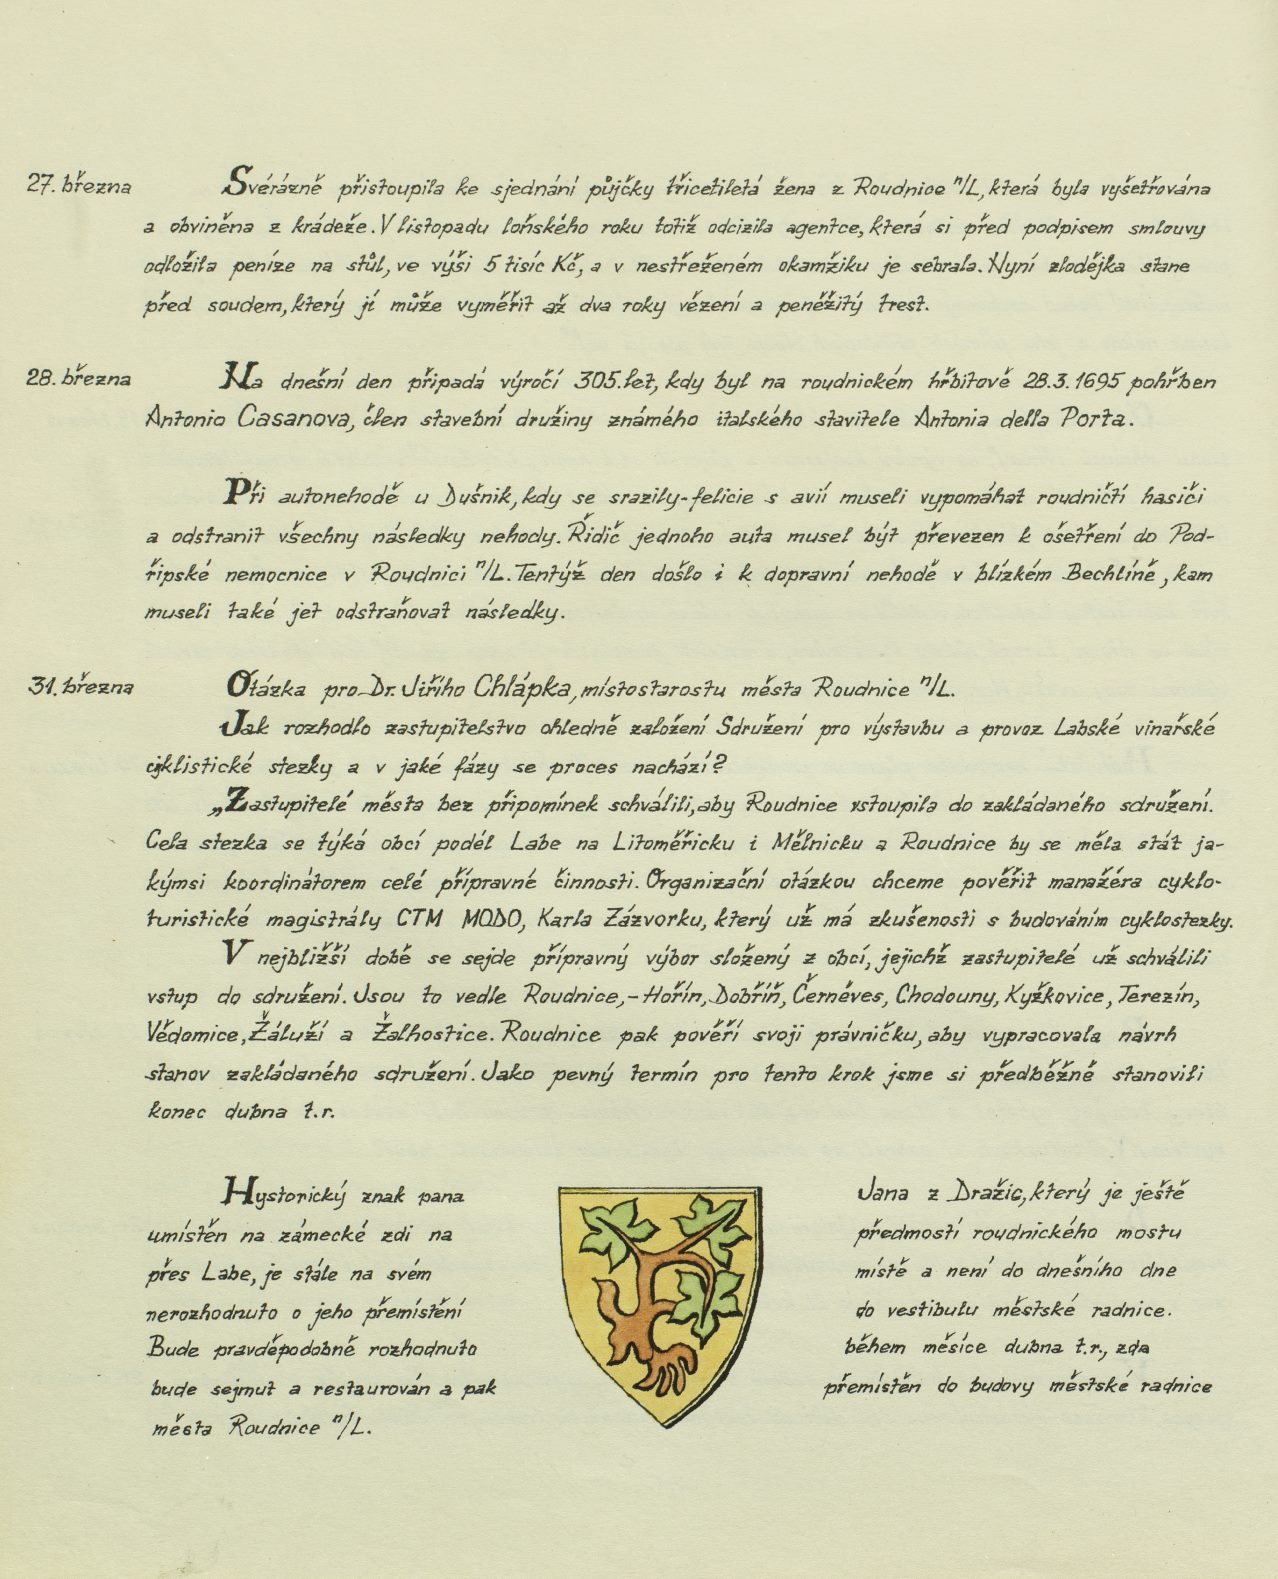 27. března Svérázně přistoupila ke sjednání půjčky třicetiletá žena z Roudnice n/L, která byla vyšetřována
a obviněna z krádeže. V listopadu loňského roku totiž odcizila agentce, která si před podpisem smlouvy
odložila peníze na stůl, ve výši 5 tisíc Kč, a v nestřeženém okamžiku je sebrala. Nyní zlodějka stane
před soudem, který jí může vyměřit až dva roky vězení a peněžitý trest.
28. března Na dnešní den připadá výročí 305. let, kdy byl na roudnickém hřbitově 28.3.1695 pohřben
Antonio Casanova, člen stavební družiny známého italského stavitele Antonia della Porta.
Při autonehodě u Dušnik, kdy se srazily - felicie s avií museli vypomáhat roudničtí hasiči
a odstranit všechny následky nehody. Řidič jednoho auta musel být převezen k ošetření do Pod-
řipské nemocnice v Roudnici n/L. Tentýž den došlo i k dopravní nehodě v blízkém Bechlíně, kam
museli také jet odstraňovat následky.
31. března Otázka pro Dr. Jiřího Chlápka, místostarostu města Roudnice n/L.
Jak rozhodlo zastupitelstvo ohledně založení Sdružení pro výstavbu a provoz Labské vinařské
cyklistické stezky a v jaké fázy se proces nachází?
„Zastupitelé města bez připomínek schválili, aby Roudnice vstoupila do zakládaného sdružení.
Cela stezka se týká obcí podél Labe na Litoměřicku i Mělnicku a Roudnice by se měla stát ja-
kýmsi koordinátorem celé přípravné činnosti. Organizační otázkou chceme pověřit manažéra cyklo-
turistické magistrály CTM MODO, Karla Zázvorku, který už má zkušenosti s budováním cyklostezky.
V nejbližší době se sejde přípravný výbor složený z obcí, jejichž zastupitelé už schválili
vstup do sdružení. Jsou to vedle Roudnice, - Hořín, Dobříň, Černěves, Chodouny, Kyžkovice, Terezín,
Vědomice, Žáluží a Žalhostice. Roudnice pak pověří svoji právničku, aby vypracovala návrh
stanov zakládaného sdružení. Jako pevný termín pro tento krok jsme si předběžně stanovili
konec dubna t.r.
Hystorický znak pana Jana z Dražic, který je ještě
umístěn na zámecké zdi na předmostí roudnického mostu
přes Labe, je stále na svém místě a není do dnešního dne
nerozhodnuto o jeho přemístění do vestibulu městské radnice.
Bude pravděpodobně rozhodnuto během měsíce dubna t.r., zda
bude sejmut a restaurován a pak přemístěn do budovy městské radnice
města Roudnice n/L.